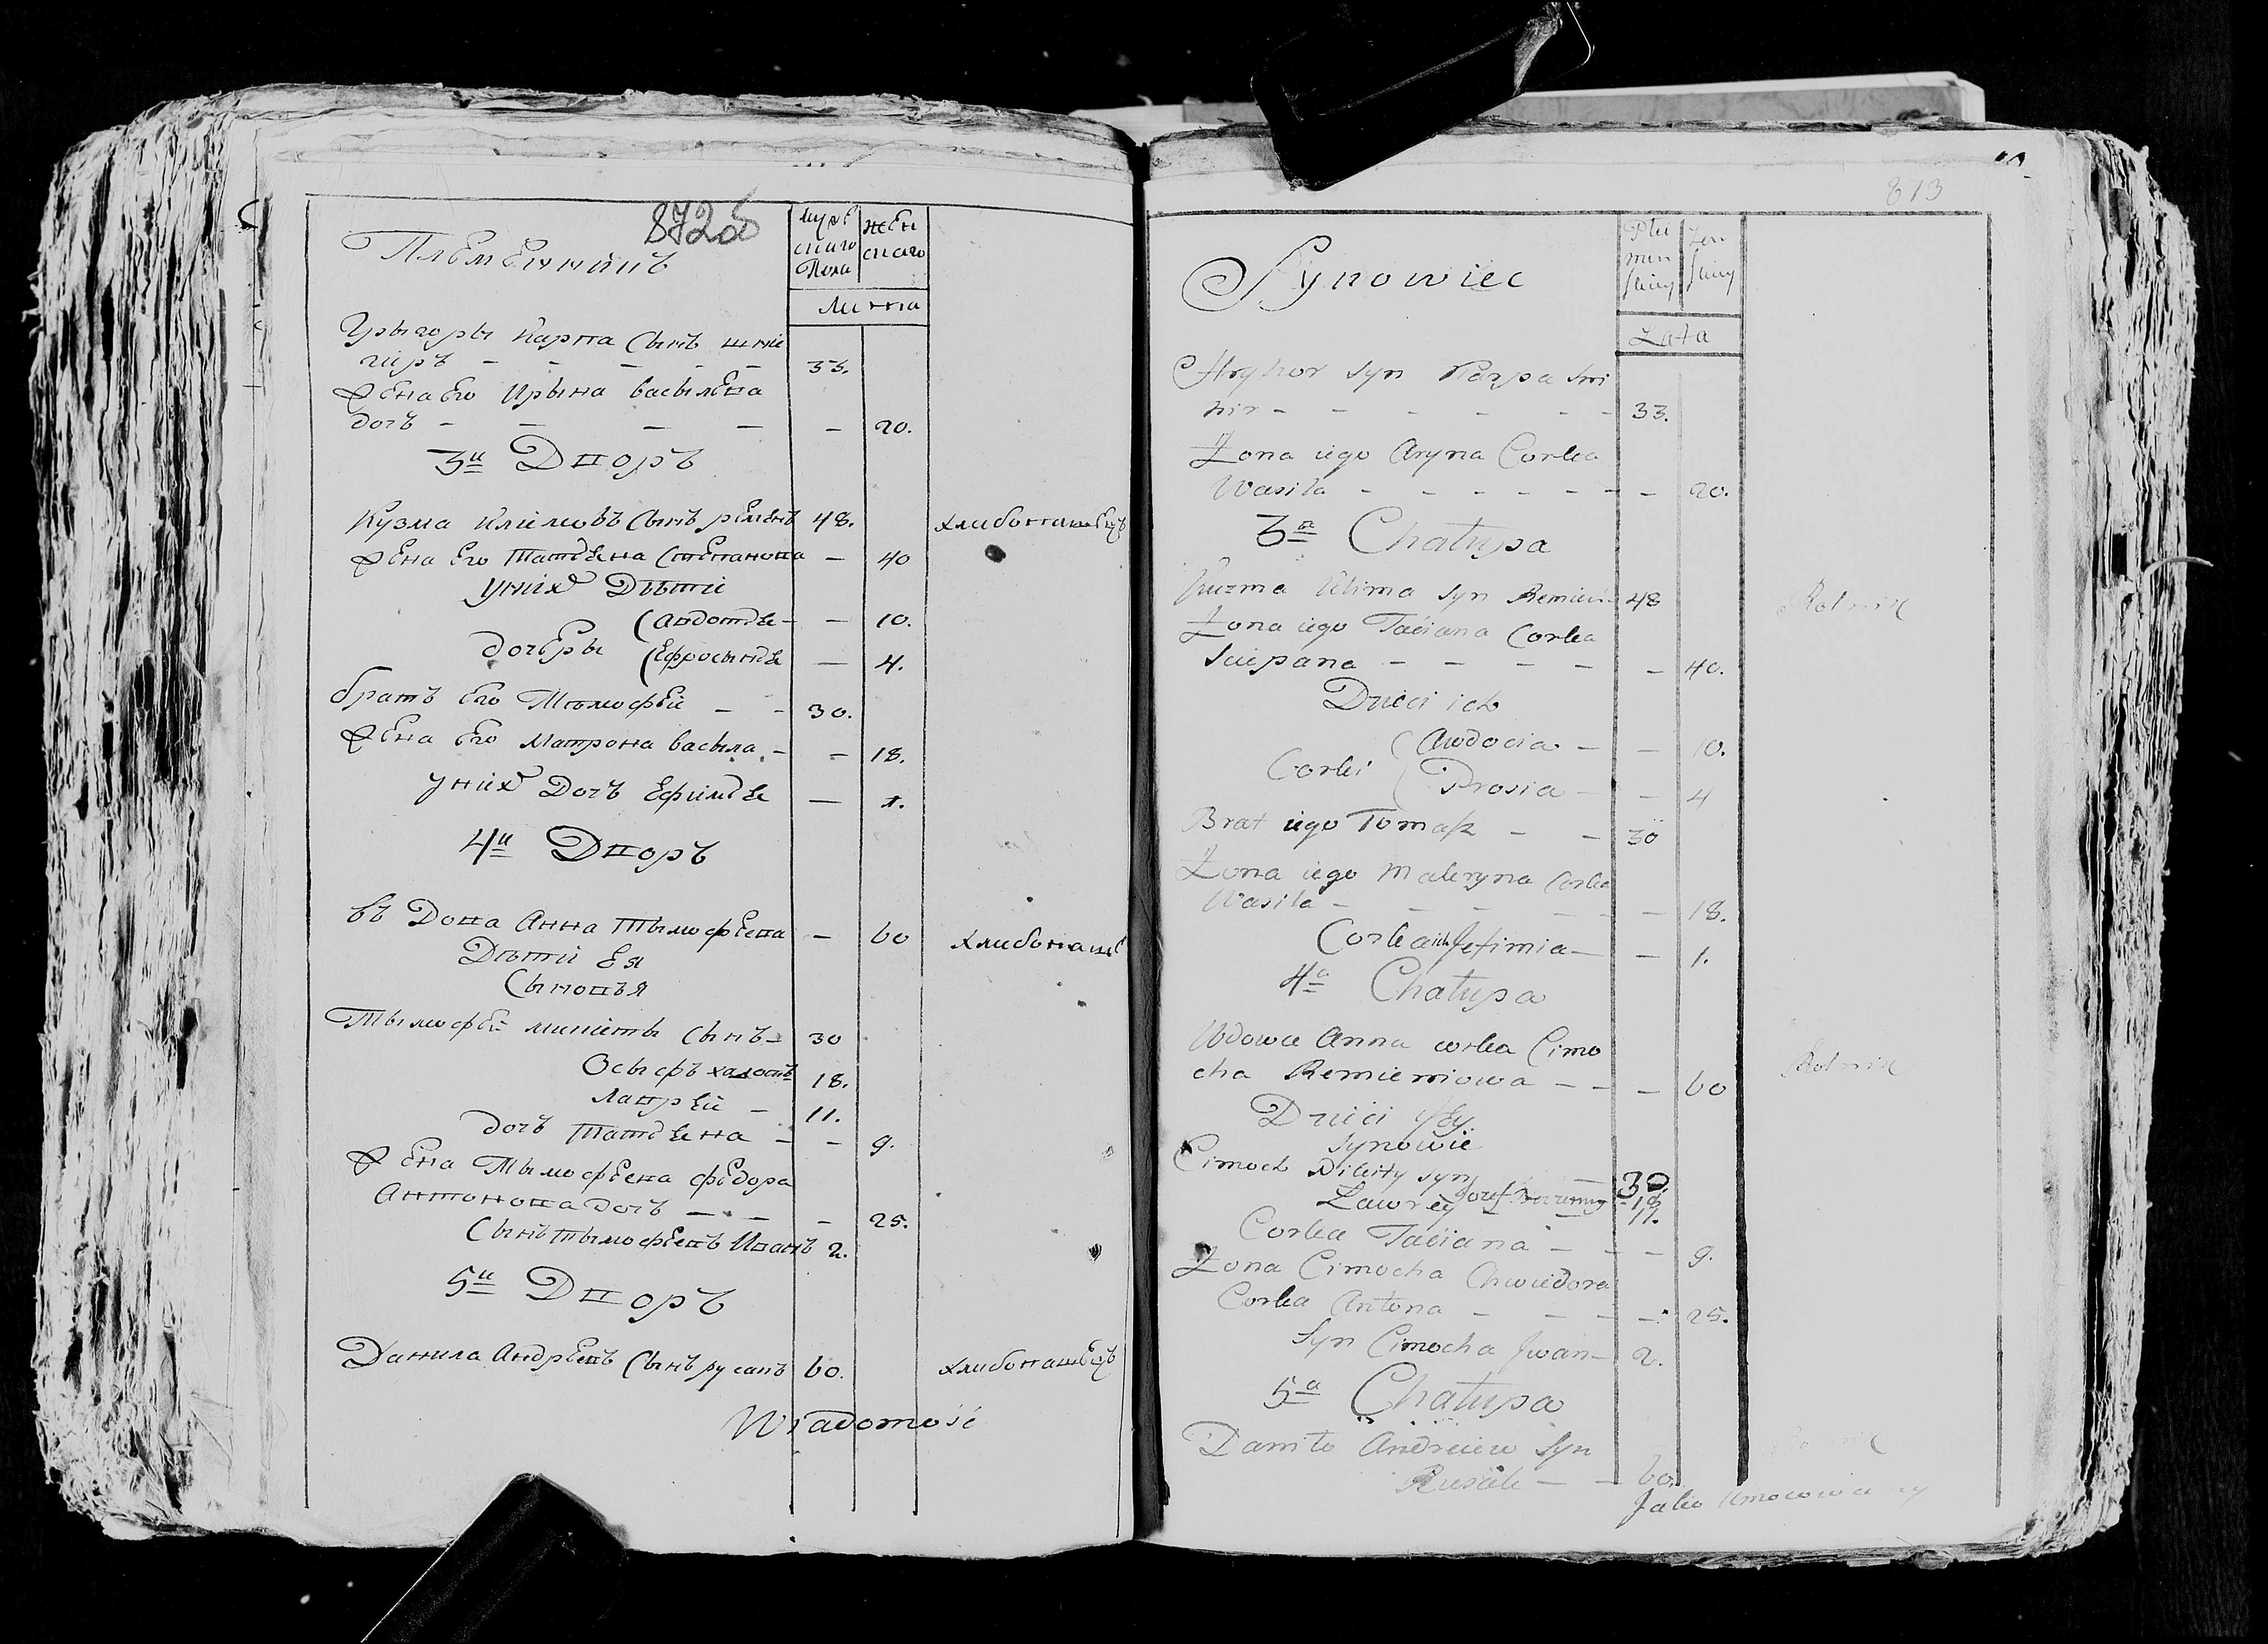 872об
Племенникъ
мужескаго Пола
женскаго
Лита
Грыгоры Карпа Сынъ шни
гиръ - - - - - 33.
Жена Его Ирына васылева
дочъ - - - - - 20.
3й Дворъ
Кузма Климовъ Сынъ 48. хлибопашецъ
Жена Его Татяна Степанова - 40
у них Дѣти
(Авдотя - - 10.
дочеры (Ефросыня - 4.
братъ Его Тымофей - - 30.
Жена Его Матрона васыла - - 18.
у них Дочъ Ефимя - 1.
4й Дворъ
въ Дова Анна Тымофеева - 60 хлибопаш
Дѣти Ея
Сыновья
Тымофей микиты Сынъ - 30
Осыфъ халостъ 18.
Лаврей - 11.
дочъ Татяна - - 9.
Жена Тымофеева федора
Антонова дочъ - - - 25.
Сынъ тымофеевъ Иванъ 2.
5й Дворъ
Данила Андреевъ Сынъ русакъ 60. хлибопашецъ
Wiadomość
873
Synowiec
Płci męn skiey
żen skiey
Lata
Hryhor syn Karpa Sni
hir - - - - - - 33.
Żona iego Aryna Corka
Wasila - - - - - - - 20.
3a Chałupa
Kuzma Klima syn 48 Rolnik
Żona iego Taciana Corka
Sciepana - - - - - 40.
Dzieci ich
(Awdocia - - 10.
Corki (Prosia - - 4
Brat iego Tomasz - - 30
Żona iego Corka
Wasila - - - - - - 18.
Corka ich Jefimia - - 1.
4a Chałupa
Wdowa Anna corka Cimo
cha Remieniowa - - - 60 Rolnik
Dzieci Jey
Synowie
Cimoch Nikity syn - 30.
Jozef - 18
Ławrey - - 11.
Corka Taciana - - - 9.
Żona Cimocha Chwiedora
Corka Antona - - - - 25.
Syn Cimocha Jwan - 2.
5a Chałupa
Daniło Andreiew Syn
Rusak - - 60.
Jako Umocowany